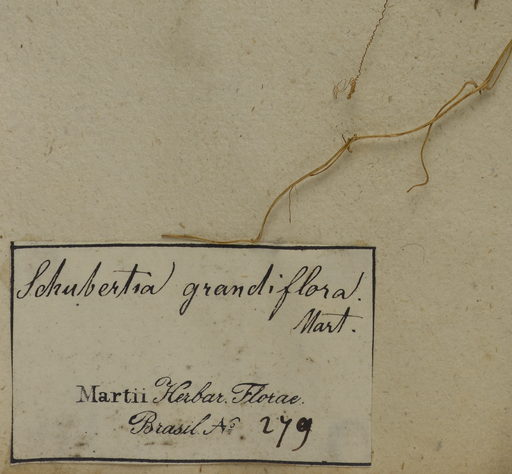 Schubertia grandiflora.
Mart.
Martii Herbar. Florae
Brasil. No 279